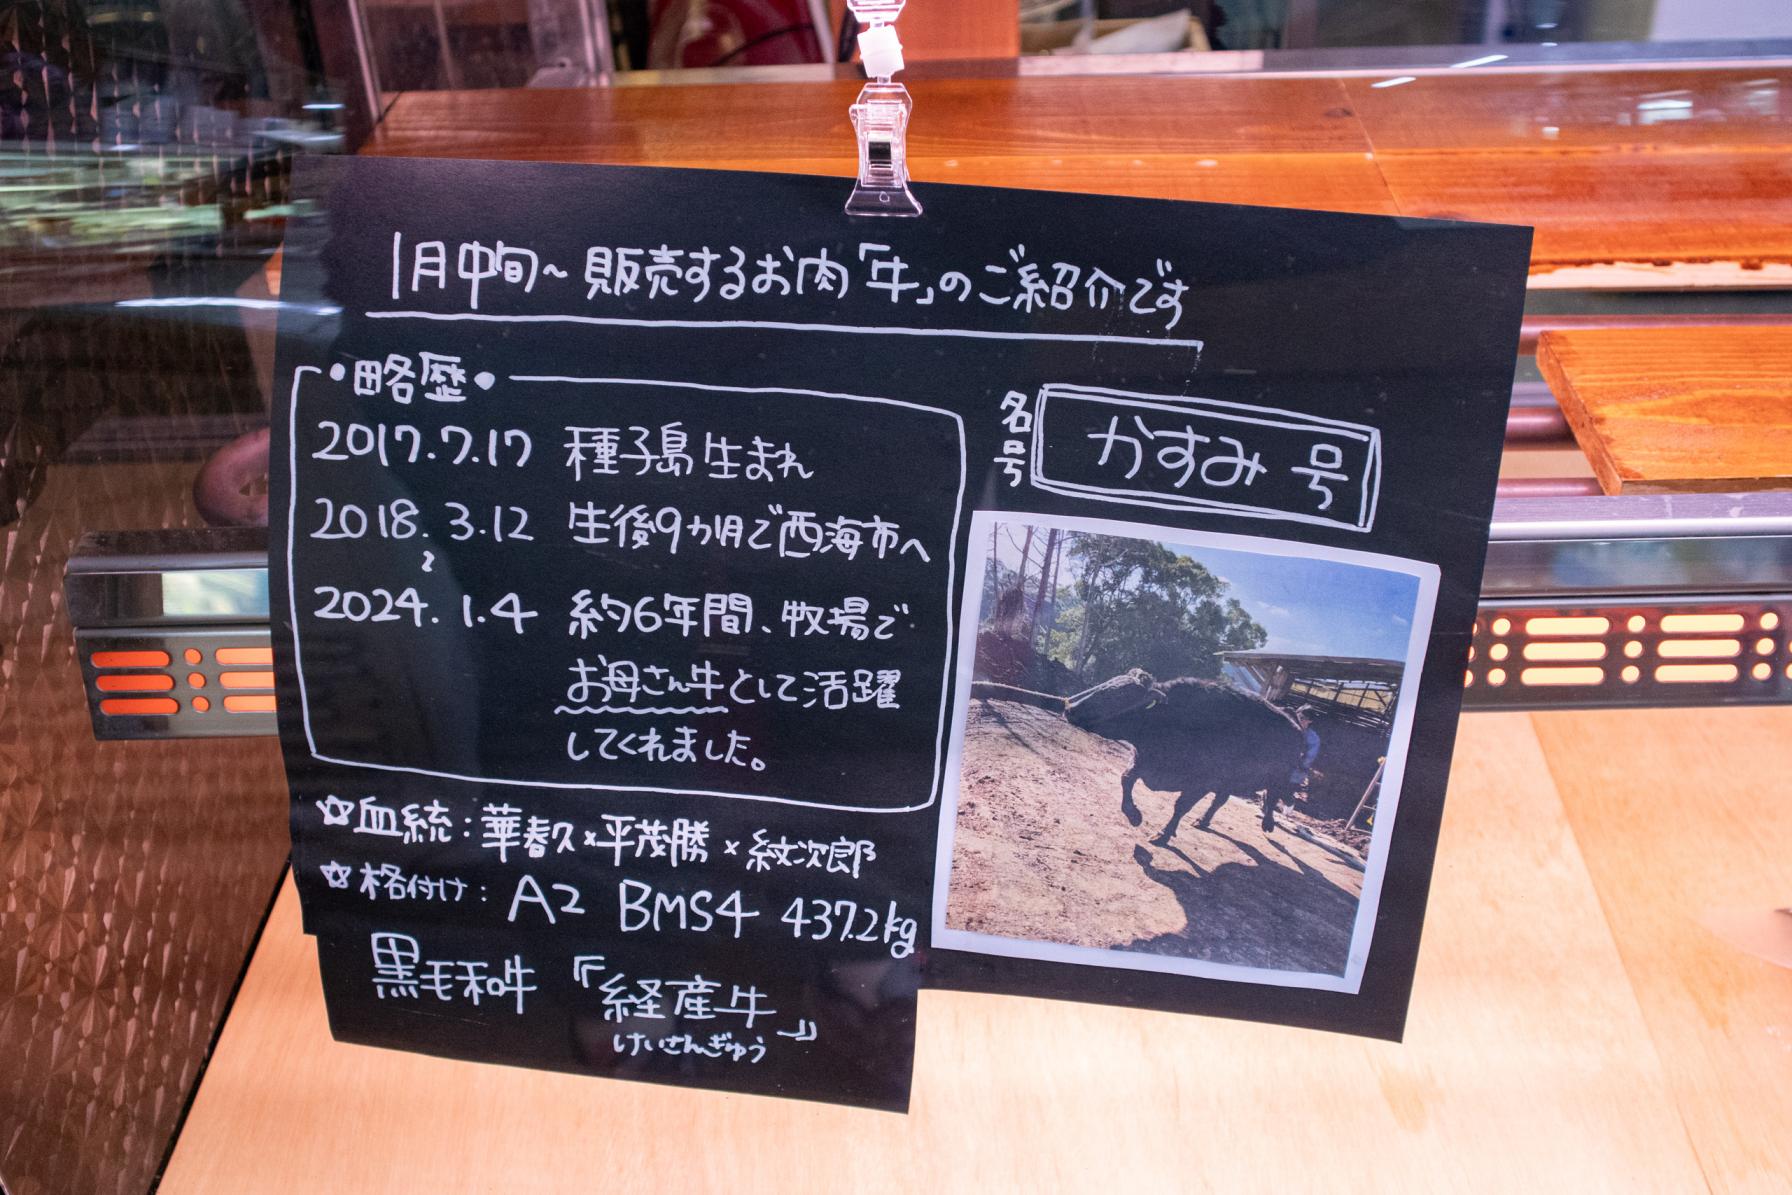 1月中旬~販売するお肉「牛」のご紹介です
•略歴•
2017.7.17 種子島生まれ
2018.3.12 生後9カ月で西海市へ
~
2024.1.4 約6年間、牧場で
お母さん牛として活躍
してくれました。
名号 かすみ号
☆血統:華春久×平茂勝×紋次郎
☆格付け: A2 BMS4 437.2kg
黒毛和牛『経産牛』
けいさんぎゅう